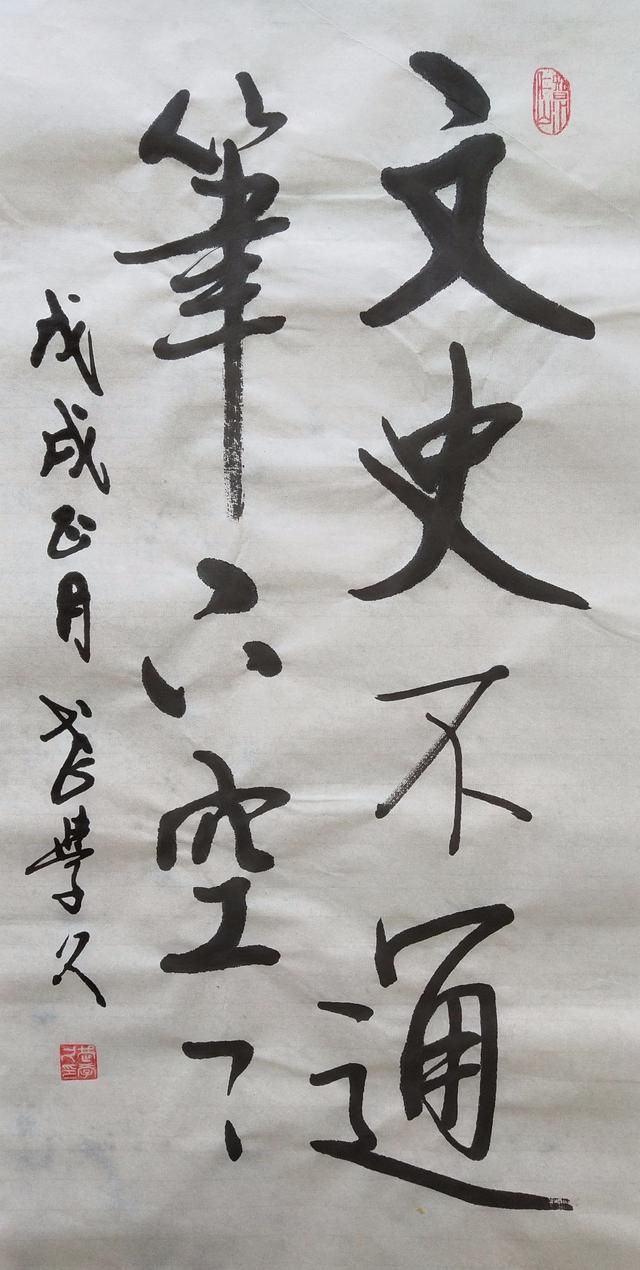 文史不通
筆下空々
戊戌正月 學